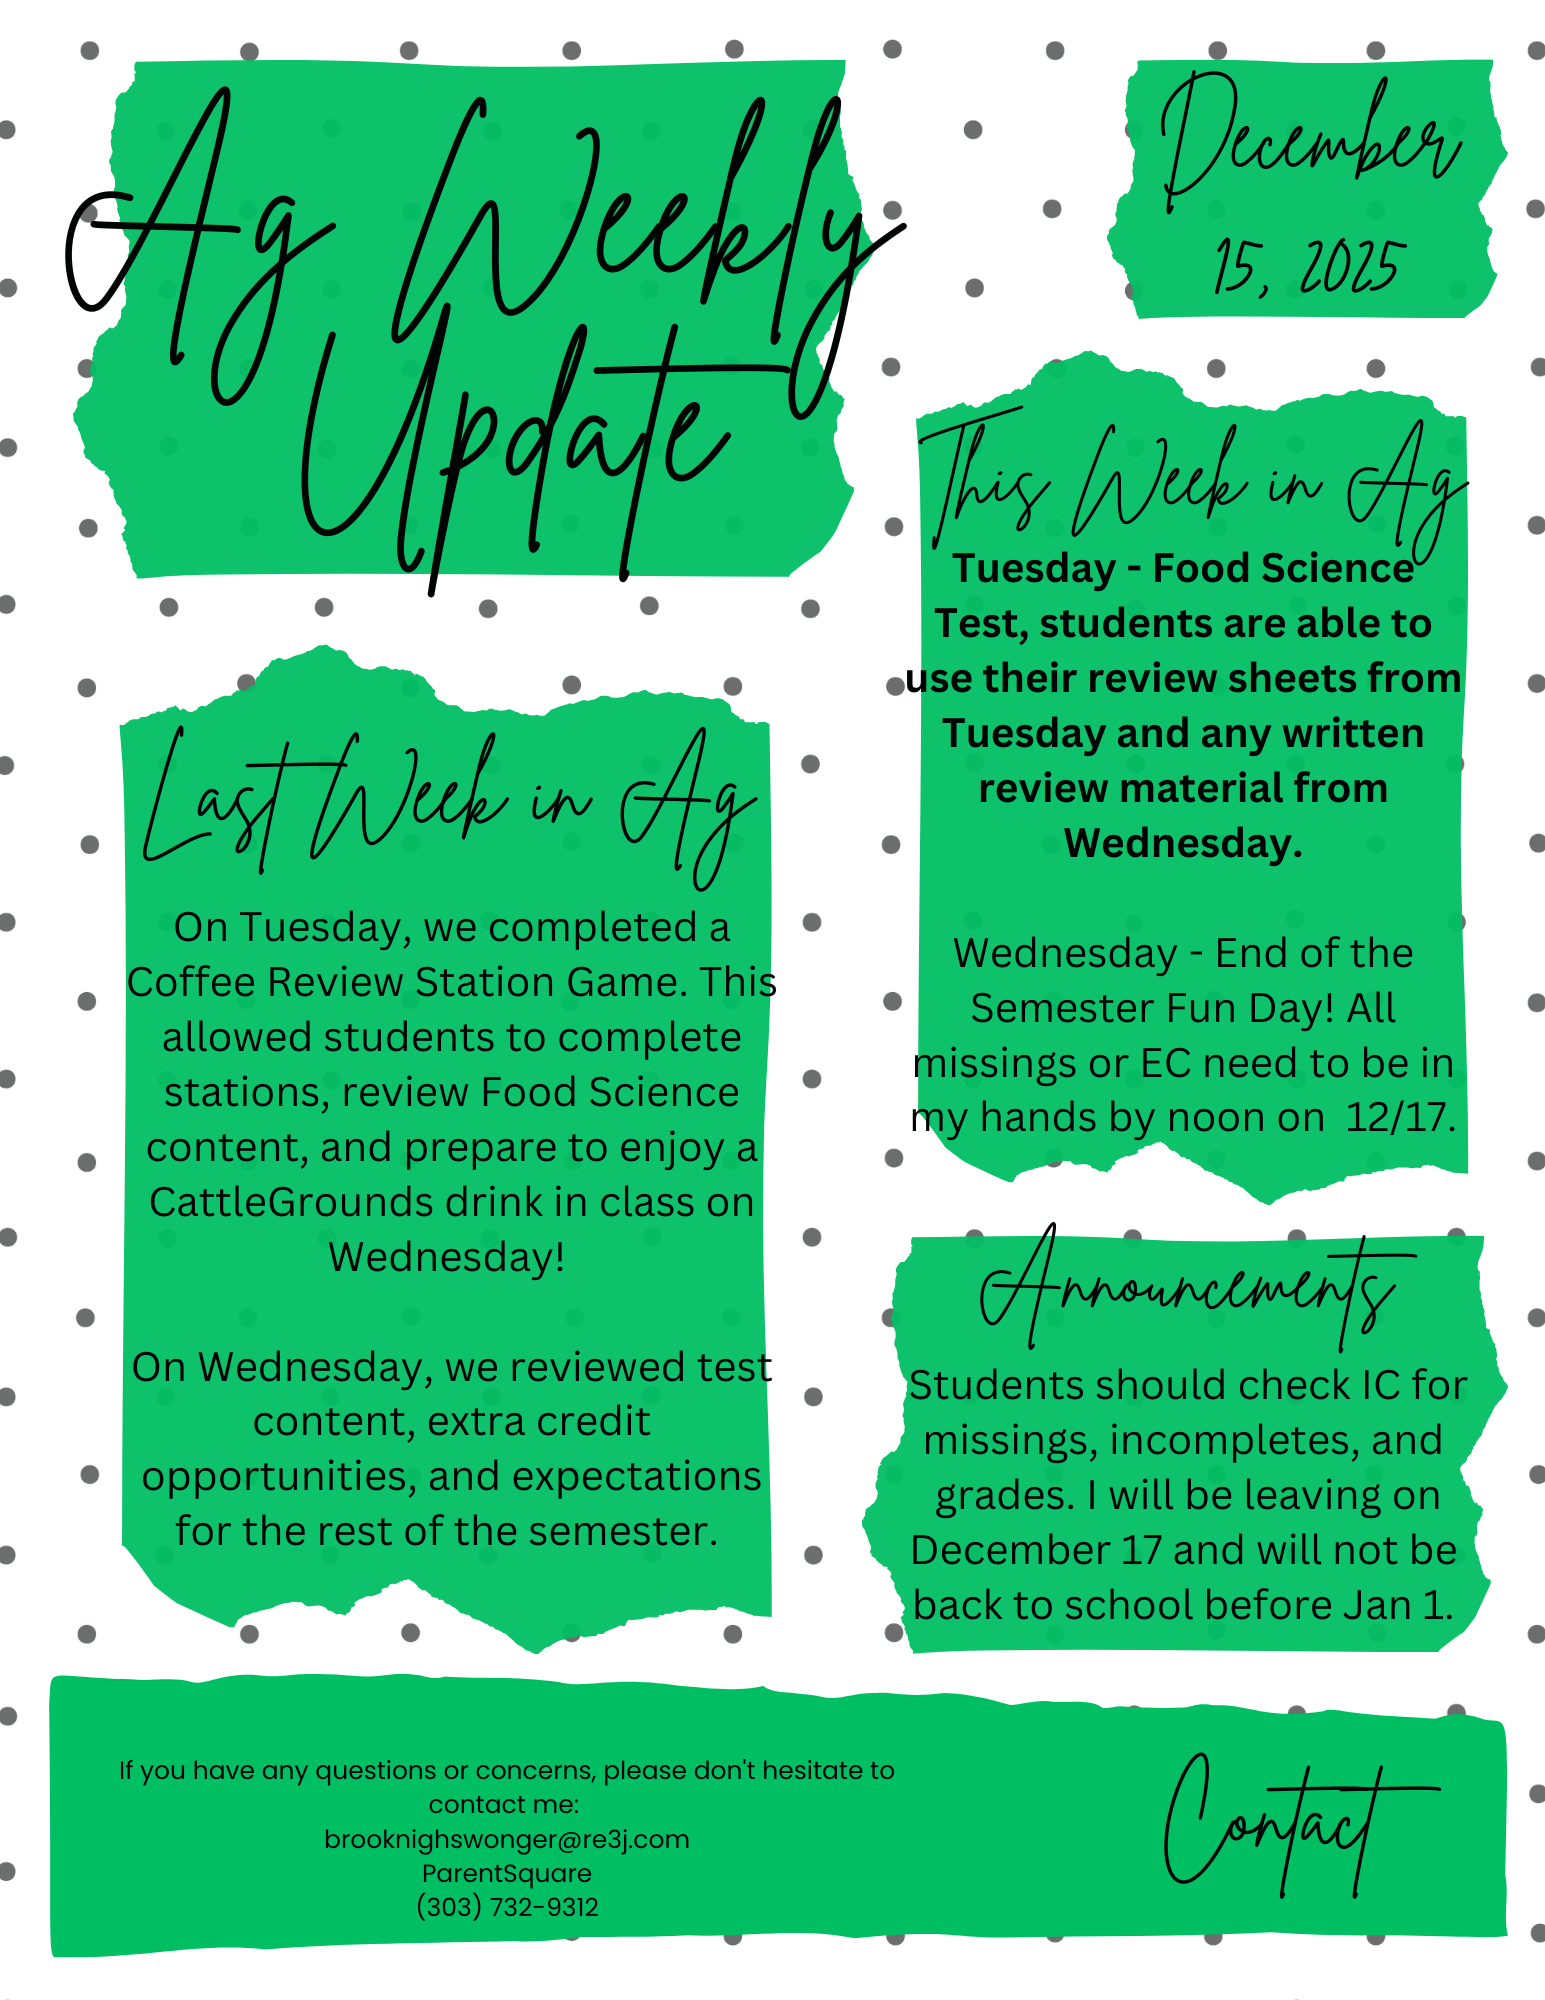 Ag Weekly
Update
December
15, 2025
Last Week in Ag
On Tuesday, we completed a
Coffee Review Station Game. This
allowed students to complete
stations, review Food Science
content, and prepare to enjoy a
CattleGrounds drink in class on
Wednesday!
On Wednesday, we reviewed test
content, extra credit
opportunities, and expectations
for the rest of the semester.
This Week in Ag
Tuesday - Food Science
Test, students are able to
use their review sheets from
Tuesday and any written
review material from
Wednesday.
Wednesday - End of the
Semester Fun Day! All
missings or EC need to be in
my hands by noon on 12/17.
Announcements
Students should check IC for
missings, incompletes, and
grades. I will be leaving on
December 17 and will not be
back to school before Jan 1.
If you have any questions or concerns, please don't hesitate to
contact me:
brooknighswonger@re3j.com
ParentSquare
(303) 732-9312
Contact